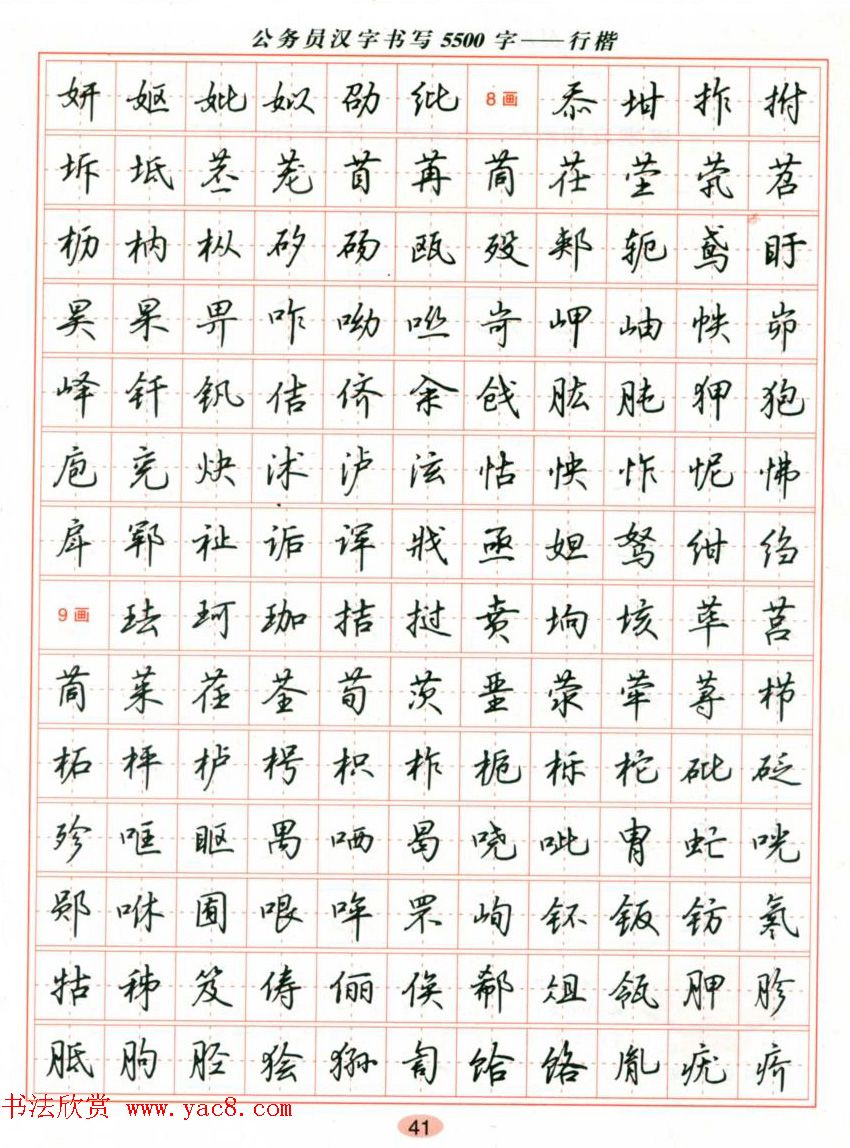 公务员汉字书写5500字——行楷
妍 妪 妣 姒 劭 纰 8画 忝 坩 拃 拊
坼 坻 茎 茏 苜 苒 茼 茌 茔 茕 茗
枥 枘 枞 矽 砀 瓯 殁 郏 轭 鸢 盱
昊 杲 畀 咋 呦 咝 岢 岬 岫 帙 峁
峄 钎 钒 佶 侪 汆 饯 肱 肫 狎 狍
庖 兖 炔 沭 泸 泫 怙 怏 怍 怩 怫
戽 郓 祉 诟 诨 戕 亟 妲 驽 绀 绉
9画 珐 珂 珈 拮 挞 贲 垧 垓 荜 莒
茼 茱 荏 荃 荀 茨 垩 荥 荦 荨 栉
柘 枰 栌 枵 枳 柞 栀 栎 柁 砒 砭
殄 哐 眍 禺 哂 曷 哓 呲 胄 虻 咣
郧 咻 囿 哏 哞 罘 峋 钚 钣 钫 氡
牯 秭 笈 俦 俪 俟 郗 俎 瓴 胛 胗
胝 朐 胫 狯 狲 訇 饸 饹 胤 疣 疥
书法欣赏 www.yac8.com
41